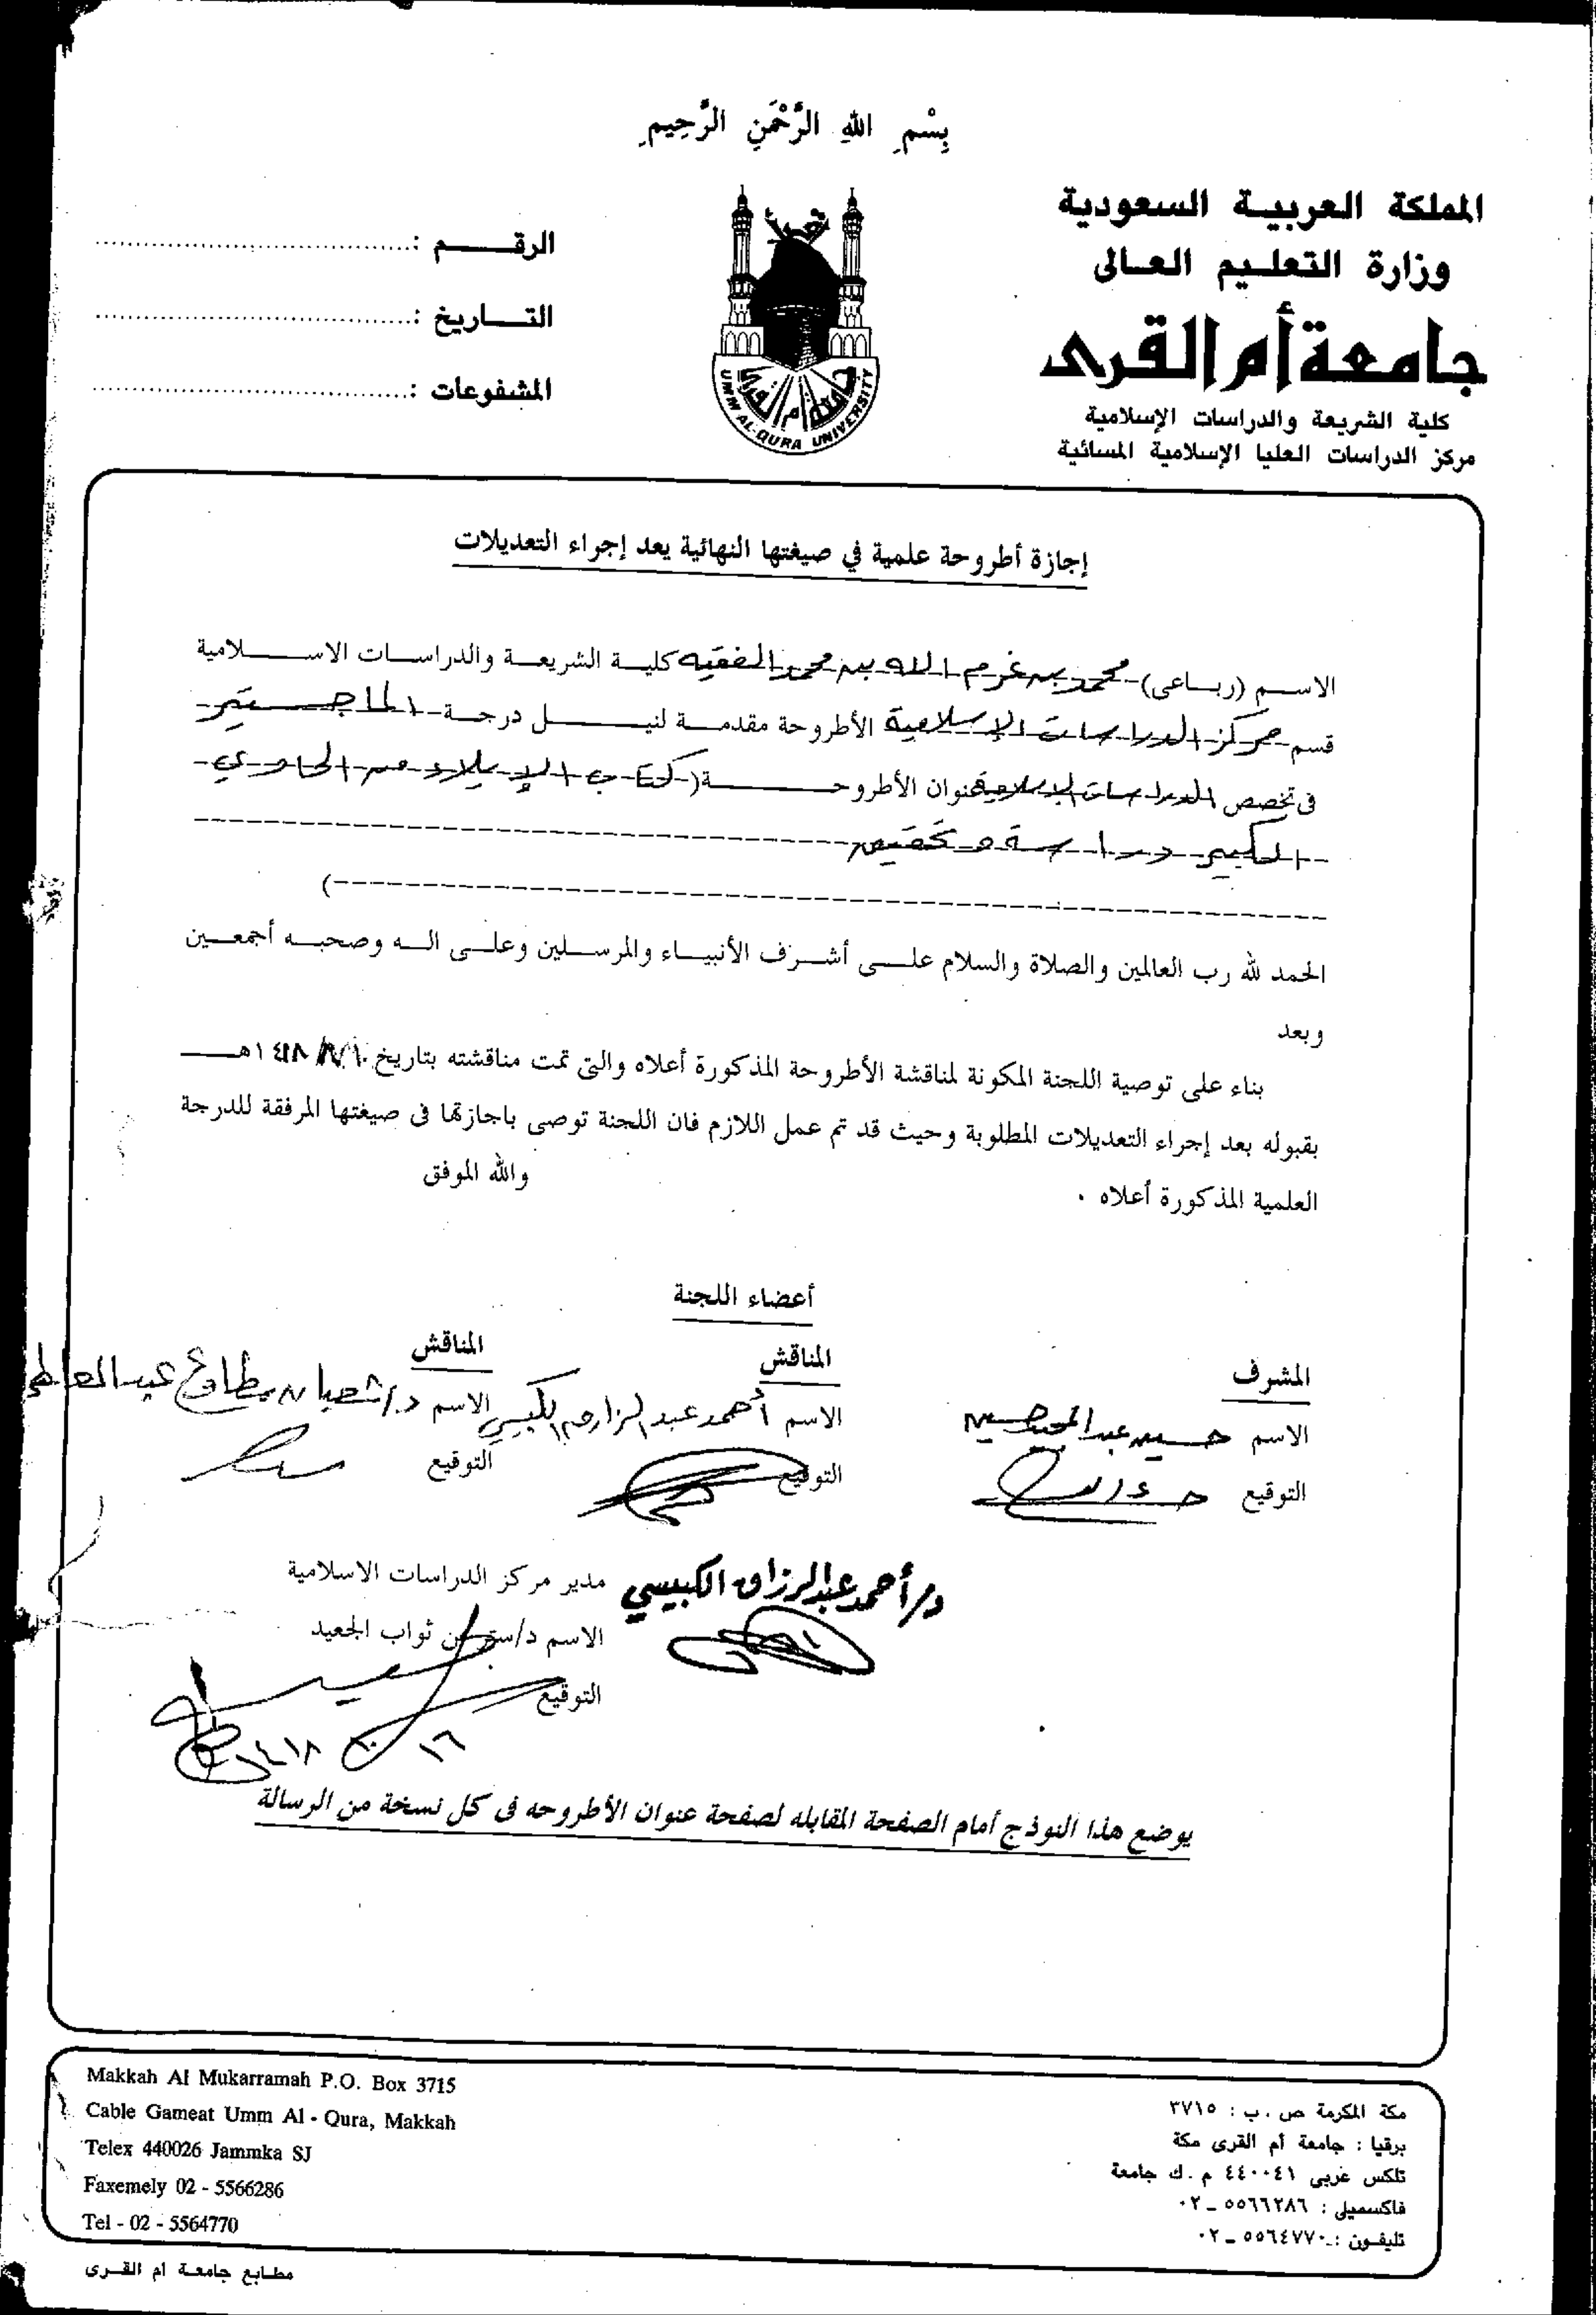 بِسْمِ اللهِ الرَّحْمَنِ الرَّحِيمِ
المملكة العربية السعودية
وزارة التعليم العالى
جامعة أم القرى
كلية الشريعة والدراسات الإسلامية
مركز الدراسات العليا الإسلامية المسائية
جامعة أم القرى
UMM AL-QURA UNIVERSITY
الرقم :
التاريخ :
المشفوعات :
إجازة أطروحة علمية في صيغتها النهائية يعد إجراء التعديلات
الاسم (رباعى) محمد بن غرم الله بن محمد الفقيه كلية الشريعة والدراسات الاسلامية
قسم مركز الدراسات الإسلامية الأطروحة مقدمة لنيل درجة الماجستير
فى تخصص الدراسات الإسلامية عنوان الأطروحة ( كتاب الإيلاء من الحاوي
الكبير دراسة و تحقيق
)
الحمد لله رب العالمين والصلاة والسلام على أشرف الأنبياء والمرسلين وعلى اله وصحبه أجمعين
وبعد
بناء على توصية اللجنة المكونة لمناقشة الأطروحة المذكورة أعلاه والتى تمت مناقشته بتاريخ ١٤١٨هـ
بقبوله بعد إجراء التعديلات المطلوبة وحيث قد تم عمل اللازم فان اللجنة توصى باجازتها فى صيغتها المرفقة للدرجة
العلمية المذكورة أعلاه .
والله الموفق
أعضاء اللجنة
المشرف
الاسم حسين عبد حسين
التوقيع
المناقش
الاسم أحمد عبد الرزاق الكبيسي
التوقيع
المناقش
الاسم د/شعبان مطاوع عبد العاطي
التوقيع
د/أحمد عبدالرزاق الكبيسي
مدير مركز الدراسات الاسلامية
الاسم د/ستر بن ثواب الجعيد
التوقيع
١٦ ١٠ ١٤١٨
يوضع هذا النوذج أمام الصفحة المقابله لصفحة عنوان الأطروحه فى كل نسخة من الرسالة
Makkah Al Mukarramah P.O. Box 3715
Cable Gameat Umm Al - Qura, Makkah
Telex 440026 Jammka SJ
Faxemely 02 - 5566286
Tel - 02 - 5564770
مكة المكرمة ص . ب : ٣٧١٥
برقيا : جامعة أم القرى مكة
تلكس عربى ٤٤٠٠٤١ م . ك جامعة
فاكسميلى : ٥٥٦٦٢٨٦ ـ ٠٢
تليفون :ـ ٥٥٦٤٧٧٠ ـ ٠٢
مطابع جامعة ام القرى